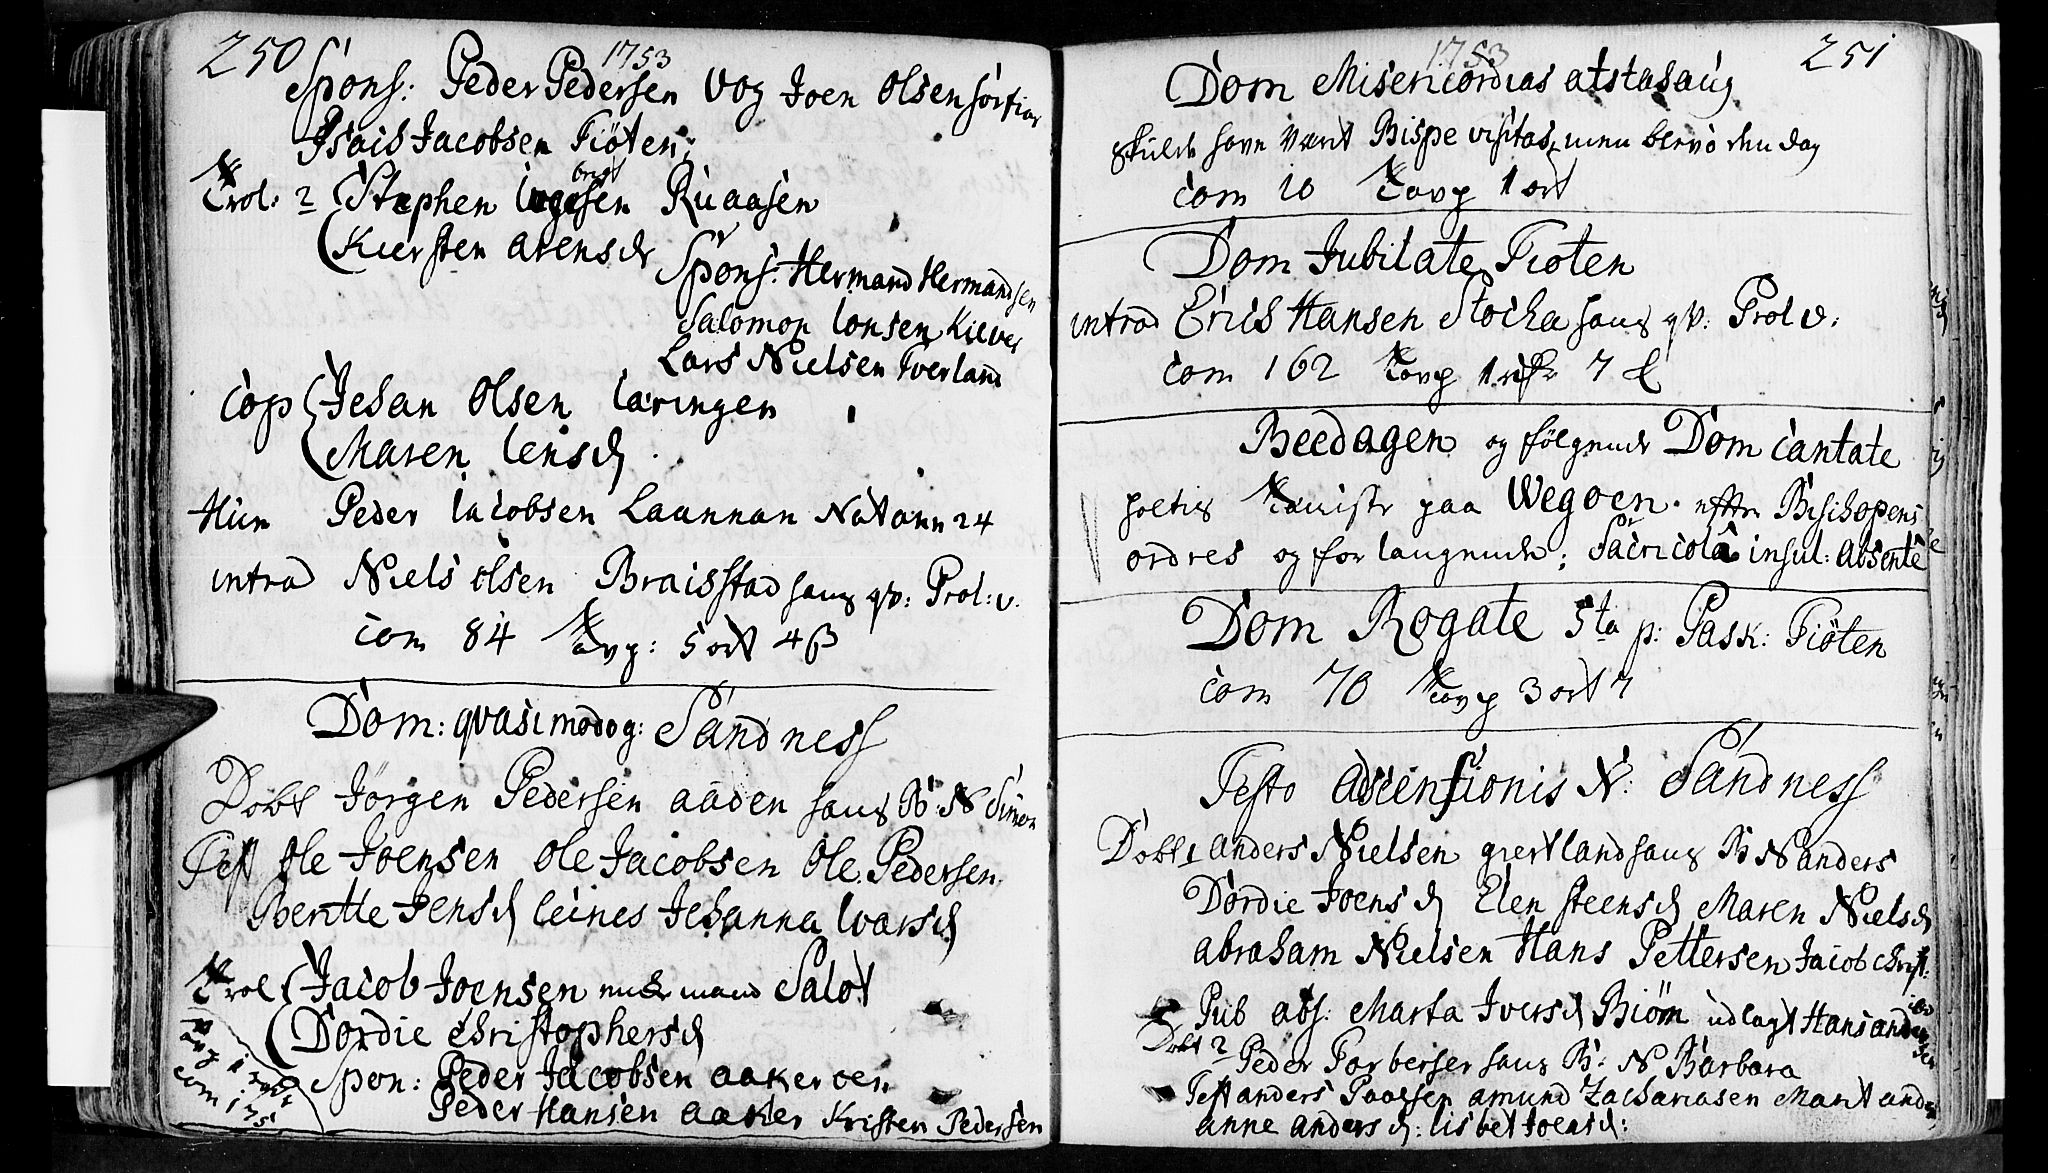 250
1753
Spons: Peder Pedersen Vog Joen Olsen
Isais Jacobsen Tiöten
Trol: 2 Stephen Ruaasen
Kiersten arensd
Spons: Hermand Hermandsen
Salomon Ionsen
Lars Nielsen Tverland
cop Jehan Olsen
Maren Iensd
Hun Peder Iacobsen Laannan Nat ann 24
introd Niels olsen Braisstad hans qv: Prol: v.
com 84 tavp: 5 ort 4 β
Dom: qvasimodog: Sandness
Döbt Jörgen Pedersen aaden hans B N Simon
Test Ole Joensen Ole Jacobsen Ole Pedersen
Bentte Jensd leines Jehanna Ivarsd
Trol Jacob Joensen Salot
Dordie christophersd
Spon: Peder Jacobsen aakerven
Peder Hansen aaker Kristen Pedersen
com 175
1753
251
Dom Misericordias atstahaug
skulde have været Bispe visitas, men blev ö den dag
com 10 tavp 1 ort
Dom Jubilate Tioten
introd Erics Hansen Stocka hans qv: Prol v:
com 162 tavp 7
Beedagen og følgende Dom cantate
paa Wegoen. efter Bischopens
ordres og forlangende; Sacricola insul: Absente
Dom Rogate 5ta p: Pask: Tiöten
com 70 tavp 3 ort 7
Festo adscensionis N: Sandness
Döbt 1 anders Nielsen giertland hans B N anders
Dordie Joensd Elen steensd Maren Nielsd
abraham Nielsen Hans Pettersen Jacob christ:
Pub abs: Marta Iversd Biörn udlagt Hans andersen
Döbt 2 Peder Torberser hans B: N Barbara
Test anders Paalsen amund Zachariasen Marit
anne andersd: lisbet Joensd: